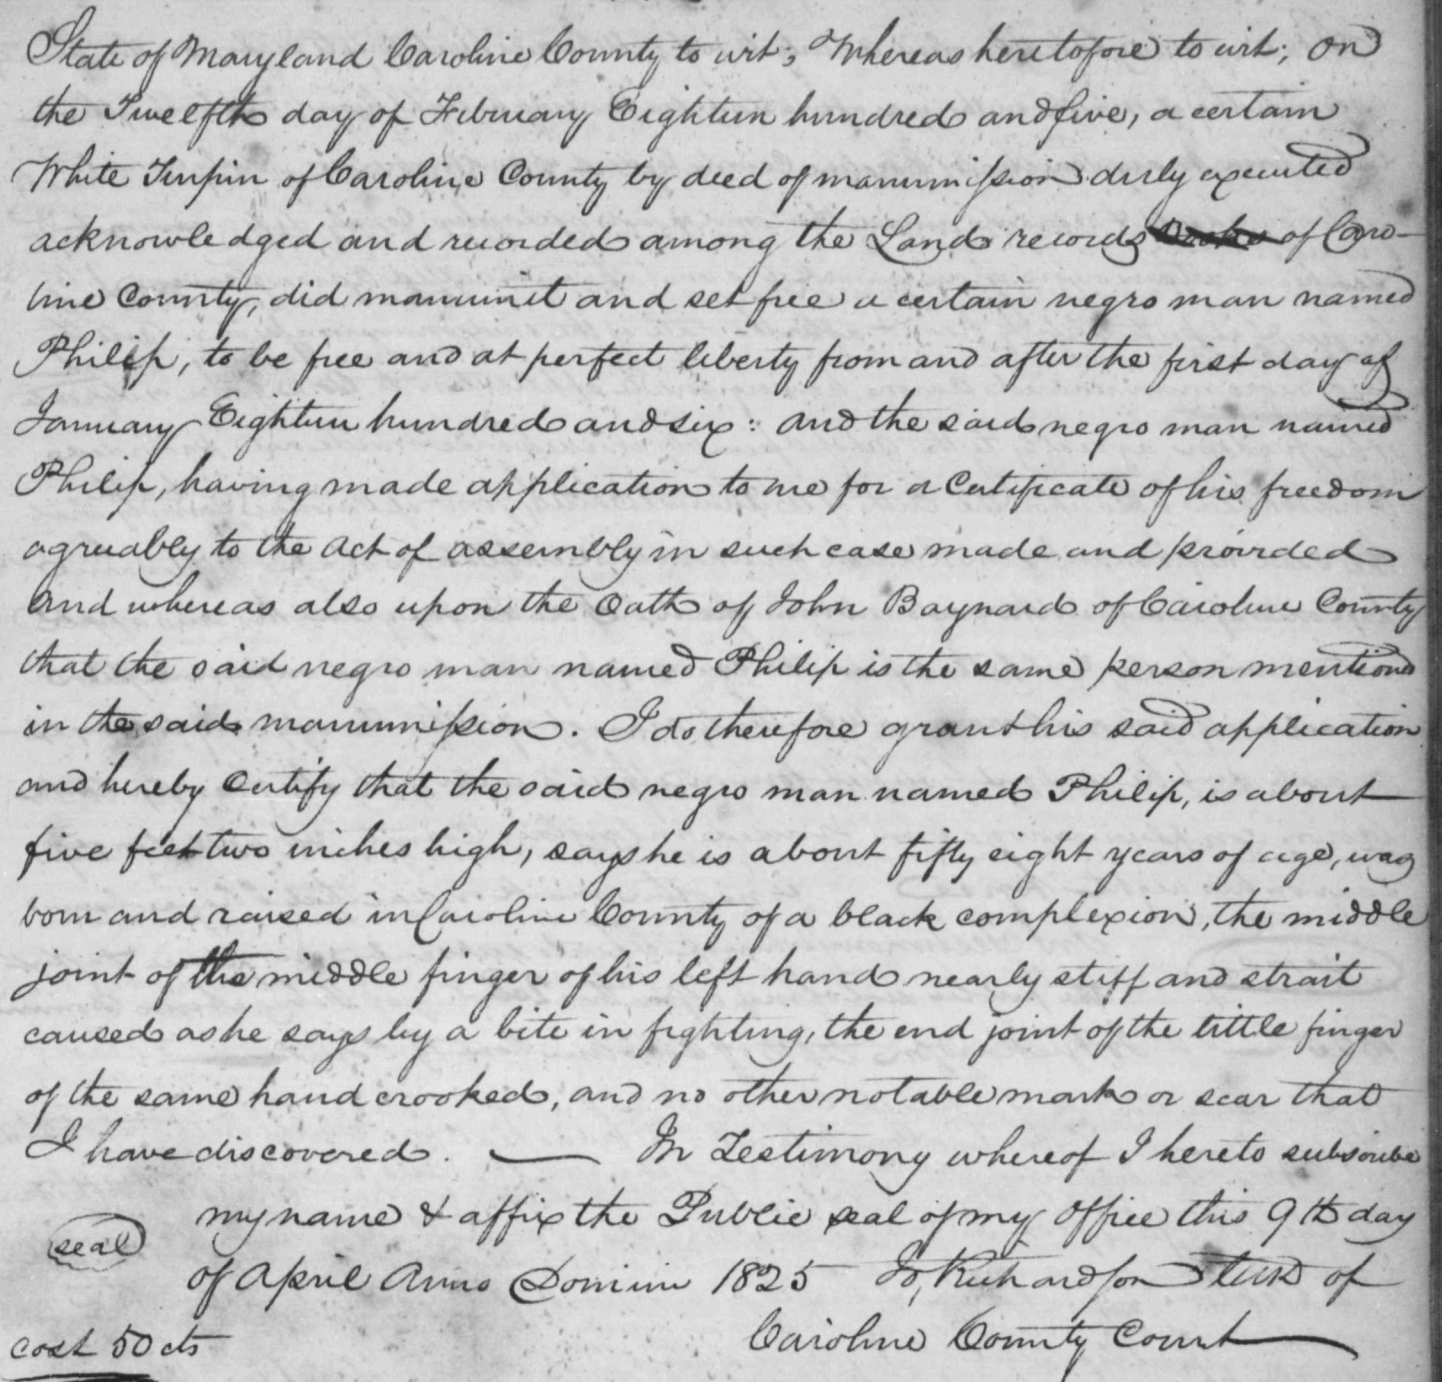 State of Maryland Caroline County to wit; Whereas heretofore to wit; On
the Twelfth day of February Eighteen hundred and five, a certain
White Turpin of Caroline County by deed of manumission duly executed
acknowledged and recorded among the Land records of Caro-
line County, did manumit and set free a certain negro man named
Philip, to be free and at perfect liberty from and after the first day of
January Eighteen hundred and six: and the said negro man named
Philip, having made application to me for a Certificate of his freedom
agreeably to the act of assembly in such case made and provided
and whereas also upon the Oath of John Baynard of Caroline County
that the said negro man named Philip is the same person mentiond
in the said manumission. I do therefore grant his said application
and hereby Certify that the said negro man named Philip, is about
five feet two inches high, says he is about fifty eight years of age, was
born and raised in Caroline County of a black complexion, the middle
joint of the middle finger of his left hand nearly stiff and strait
caused as he says by a bite in fighting, the end joint of the little finger
of the same hand crooked, and no other notable mark or scar that
I have discovered. — In Testimony whereof I hereto subscribe
my name & affix the Public seal of my Office this 9th day
seal
of April Anno Domini 1825 Jo, Richardson Clerk of
Caroline County Court
cost 50 cts